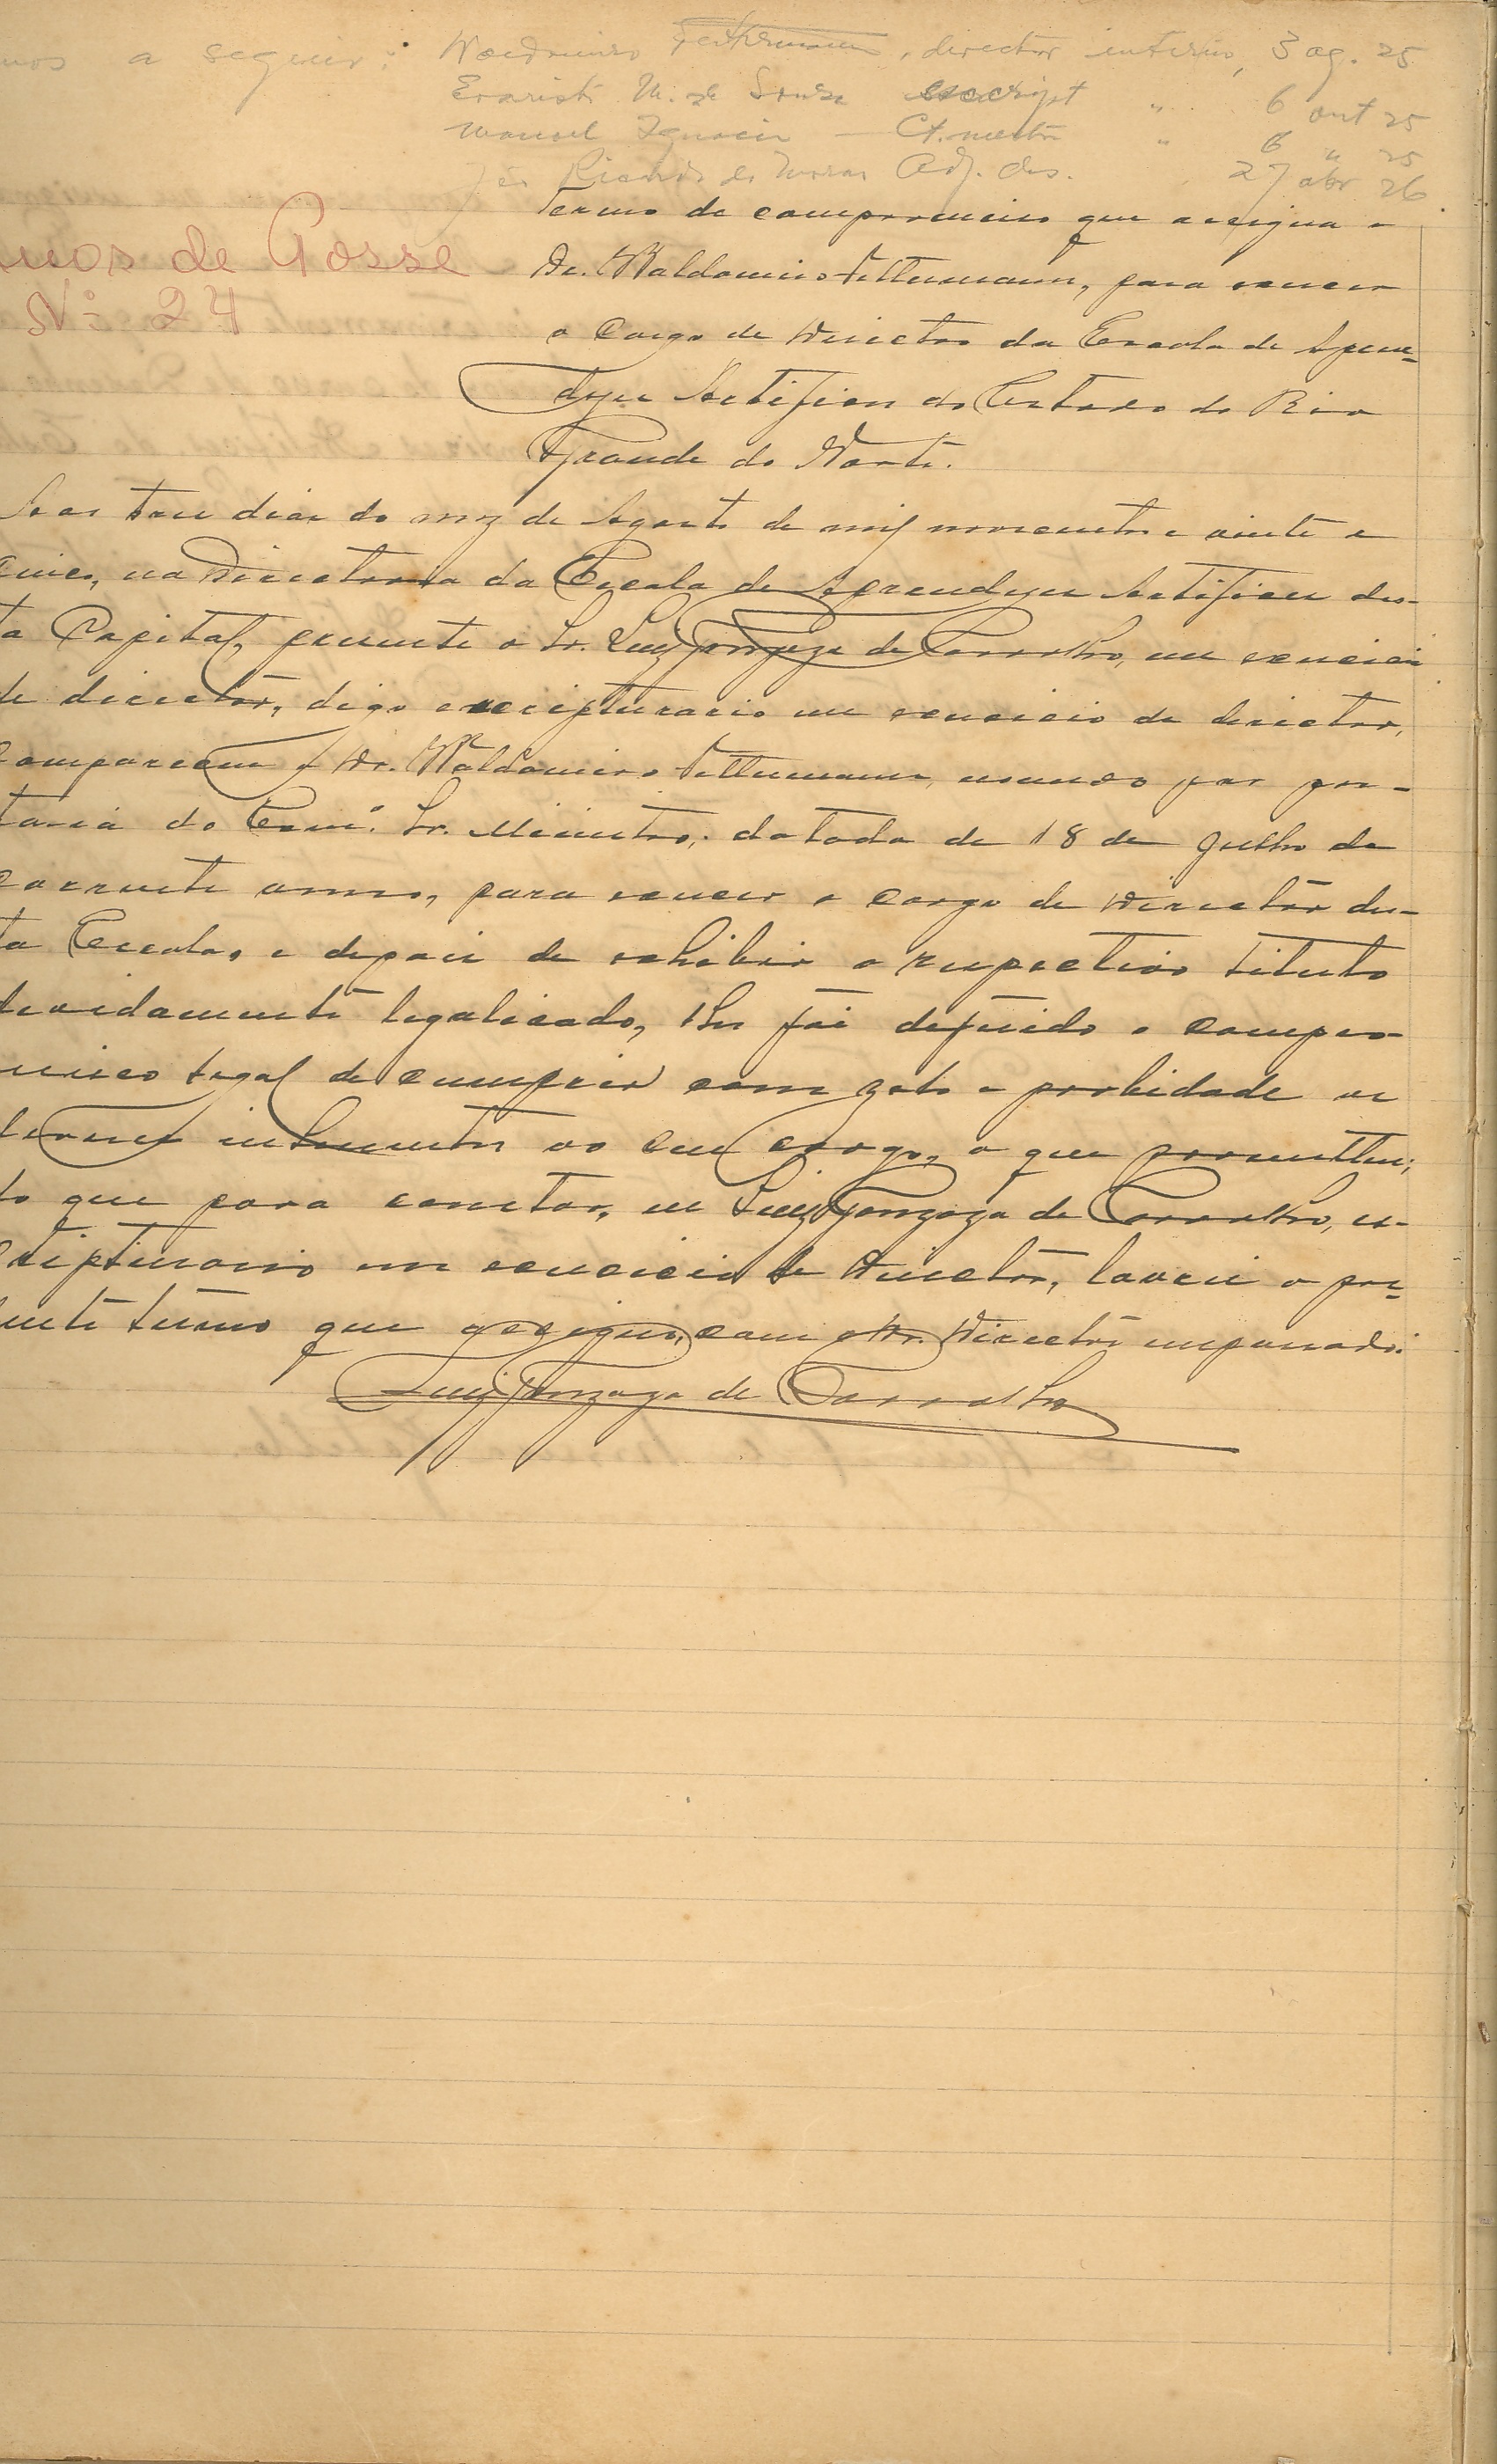 mos a seguir: Waldomiro Fettermann, director interino, 3 ag. 25
Evaristo M. de Souza escript " 6 out 25
Manoel Ignacio — Ct. mestre " 6 " 25
Ricardo de Adj. des. 27 abr 26
Termo de compromisso que assigna o
mos de Posse
Nº 24
Dr. Waldomiro Fettermann, para exercer
o cargo de Director da Escola de Apren-
dizes Artifices do Estado do Rio
Grande do Norte.
Aos tres dias do mez de Agosto de mil novecentos e vinte e
cinco, na Directoria da Escola de Aprendizes Artifices des-
ta Capital, presente o Sr. Luiz Gonzaga de Carvalho, em exercicio
de director, digo escripturario em exercicio de director,
compareceu o Dr. Waldomiro Fettermann, nomeado por por-
taria do Exmº. Sr. Ministro, datada de 18 de Julho do
corrente anno, para exercer o cargo de Director des-
ta Escola, e depois de exhibir o respectivo titulo
devidamente legalisado, lhe foi deferido o compro-
misso legal de cumprir com zelo e probidade os
deveres inherentes ao seu cargo, o que prometteu;
do que para constar, eu Luiz Gonzaga de Carvalho, es-
cripturario em exercicio de Director, lavrei o pre-
sente termo que assigno, com o Dr. Director empossado.
Luiz Gonzaga de Carvalho